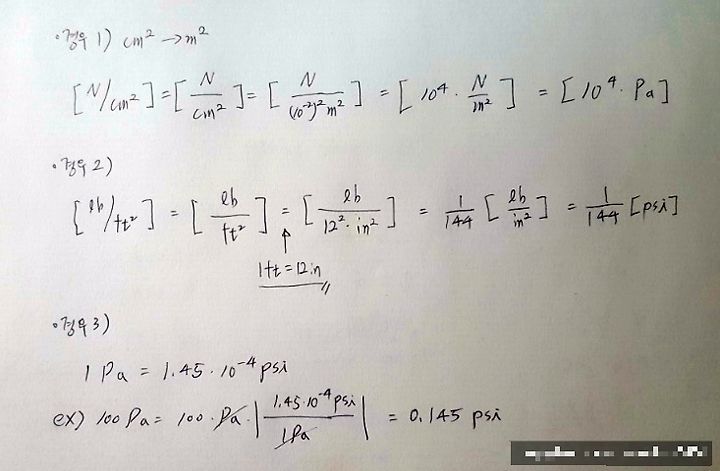 ·경우 1) cm² → m²
[N/cm²] = [N/cm²] = [N/(10⁻²)² m²] = [10⁴ · N/m²] = [10⁴ · Pa]
·경우 2)
[lb/ft²] = [lb/ft²] = [lb/12² · in²] = 1/144 [lb/in²] = 1/144 [psi]
↑
1ft = 12in
·경우 3)
1 Pa = 1.45 · 10⁻⁴ psi
ex) 100 Pa = 100 · Pa · | 1.45 · 10⁻⁴ psi / 1Pa | = 0.145 psi